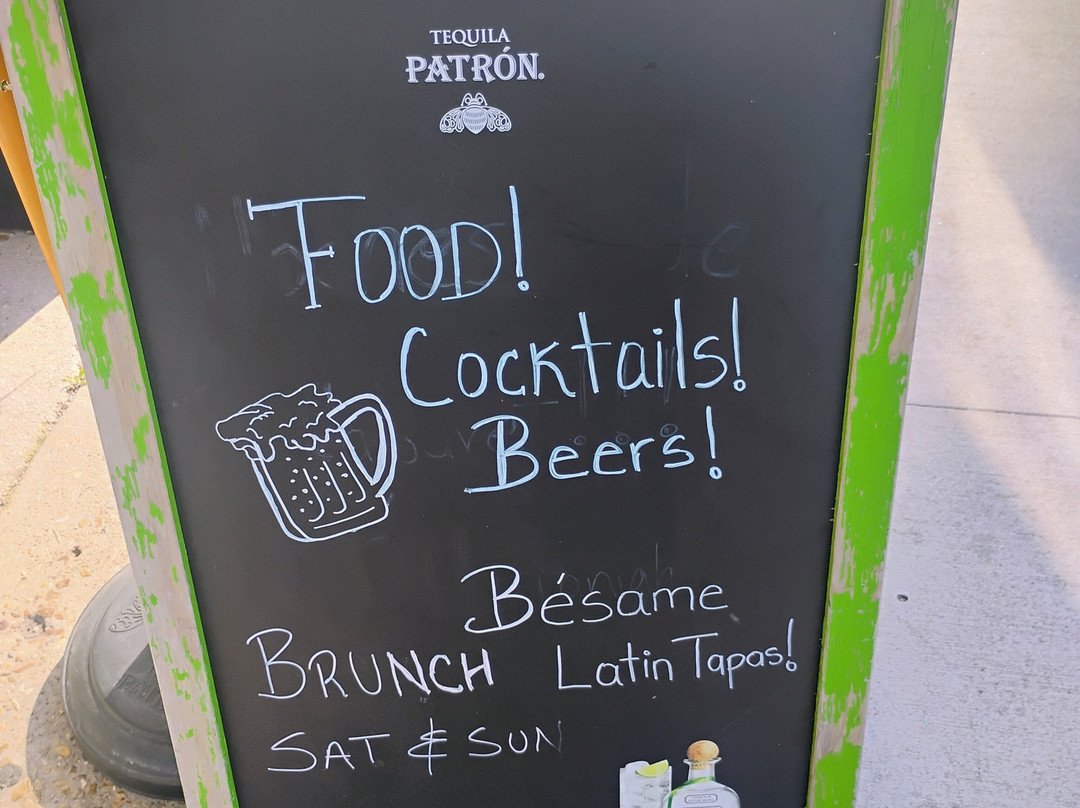 TEQUILA
PATRÓN.
FOOD!
Cocktails!
Beers!
Bésame
BRUNCH Latin Tapas!
SAT & SUN